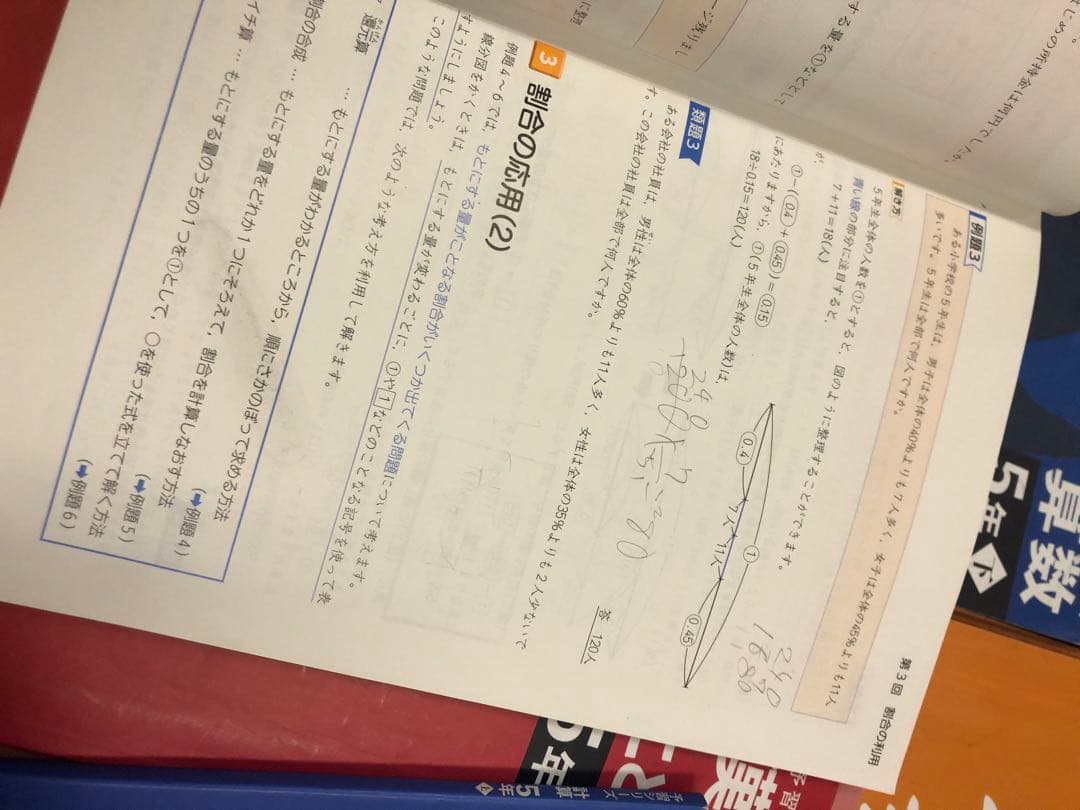 第3回 割合の利用
例題3
ある小学校の5年生は、男子は全体の40%よりも7人多く、女子は全体の45%よりも11人
多いです。5年生は全部で何人ですか。
解き方
5年生全体の人数を①とすると、図のように整理することができます。
青い線の部分に注目すると、
7+11=18(人)
が、
①-(0.4+0.45)=0.15
にあたりますから、①(5年生全体の人数)は、
18÷0.15=120(人)
①
0.4
7人
11人
0.45
答 120人
類題3
ある会社の社員は、男性は全体の60%よりも11人多く、女性は全体の35%よりも2人少ないで
す。この会社の社員は全部で何人ですか。
3 割合の応用(2)
例題4~6では、もとにする量がことなる割合がいくつか出てくる問題について考えます。
線分図をかくときは、もとにする量が変わるごとに①や1などのことなる記号を使って表
すようにしましょう。
このような問題では、次のような考え方を利用して解きます。
還元算 … もとにする量がわかるところから、順にさかのぼって求める方法
(➡例題4)
割合の合成 … もとにする量をどれか1つにそろえて、割合を計算しなおす方法
(➡例題5)
イチ算 … もとにする量のうちの1つを①として、○を使った式を立てて解く方法
(➡例題6)
じめの所持金は何円でしたか。
する量を①などとして
算数
5年下
5年
予習シリーズ
計算
5年上
予習
漢